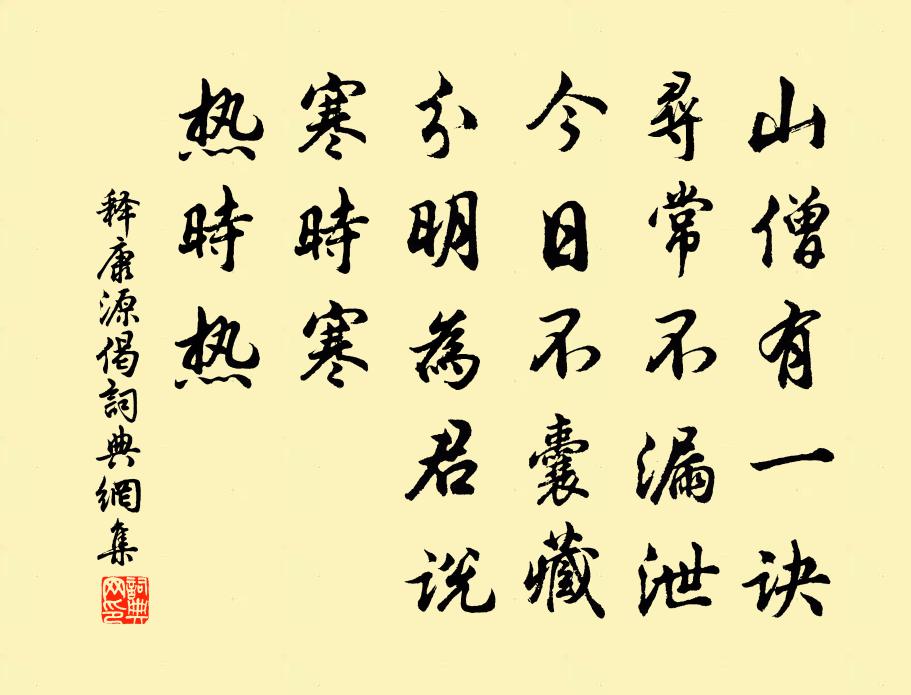 山僧有一诀
尋常不漏泄
今日不囊藏
分明為君说
寒時寒
热時热
释康源偈詞典網集
詞典网印